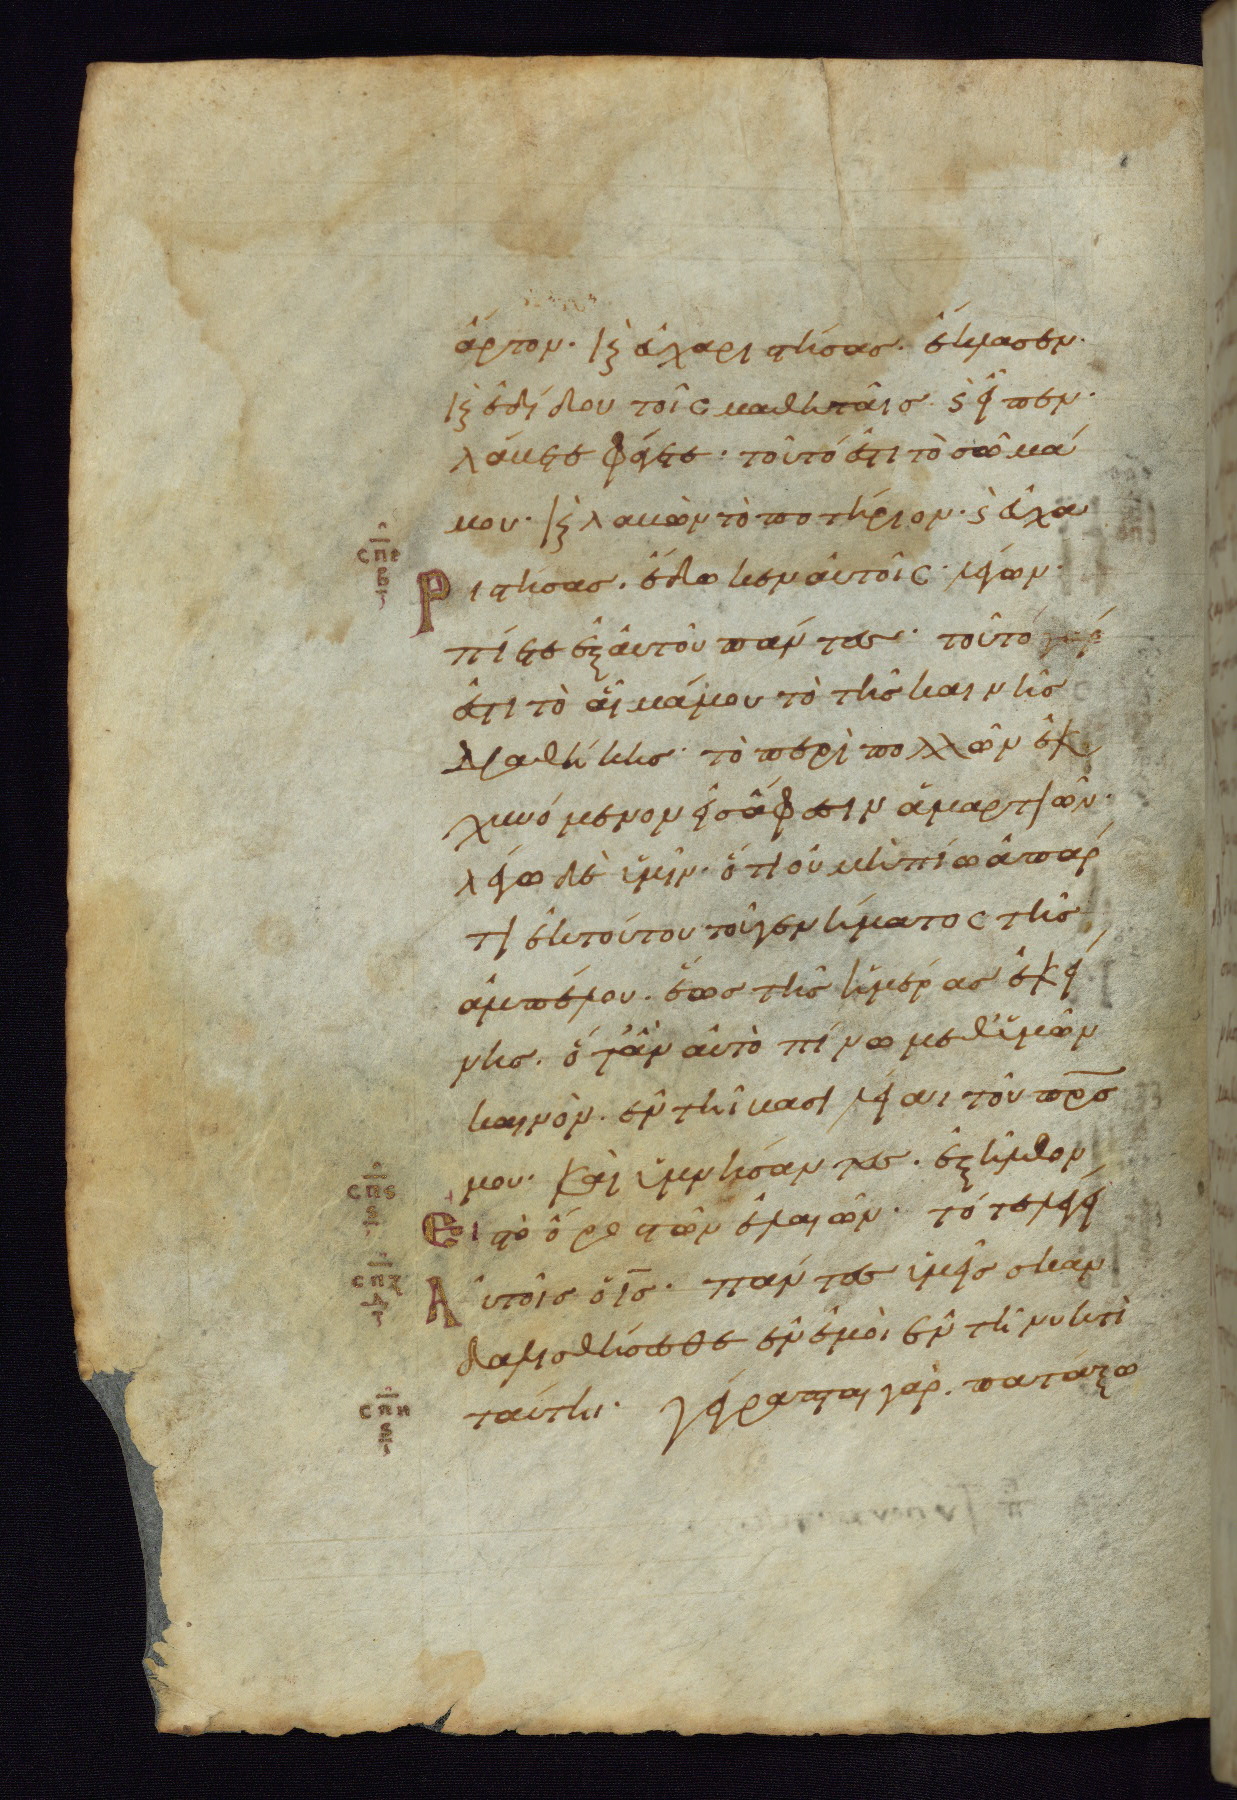 ἄρτον· καὶ εὐχαριστήσας· ἔκλασεν·
καὶ ἐδίδου τοῖς μαθηταῖς· καὶ εἶπεν·
λάβετε φάγετε· τοῦτό ἐστι τὸ σῶμά
μου· καὶ λαβὼν τὸ ποτήριον· καὶ εὐχα
ριστήσας· ἔδωκεν αὐτοῖς λέγων·
πίετε ἐξ αὐτοῦ πάντες· τοῦτό γάρ
ἐστι τὸ αἷμά μου τὸ τῆς καινῆς
διαθήκης· τὸ περὶ πολλῶν ἐκ
χυνόμενον εἰς ἄφεσιν ἁμαρτιῶν·
λέγω δὲ ὑμῖν· ὅτι οὐ μὴ πίω ἀπάρ
τι ἐκ τούτου τοῦ γενήματος τῆς
ἀμπέλου· ἕως τῆς ἡμέρας ἐκεί
νης· ὅταν αὐτὸ πίνω μεθ' ὑμῶν
καινὸν· ἐν τῇ βασιλείαι τοῦ πρς
μου· Καὶ ὑμνήσαντες· ἐξῆλθον
εἰς τὸ ὄρος τῶν ἐλαιῶν· τότε λέγει
Αὐτοῖς ὁ ις· πάντες ὑμεῖς σκαν
δαλισθήσεσθε ἐν ἐμοὶ ἐν τῇ νυκτὶ
ταύτηι· γέγραπται γάρ· πατάξω
σπε
β
σπς
ς
σπζ
δ
σπη
ς